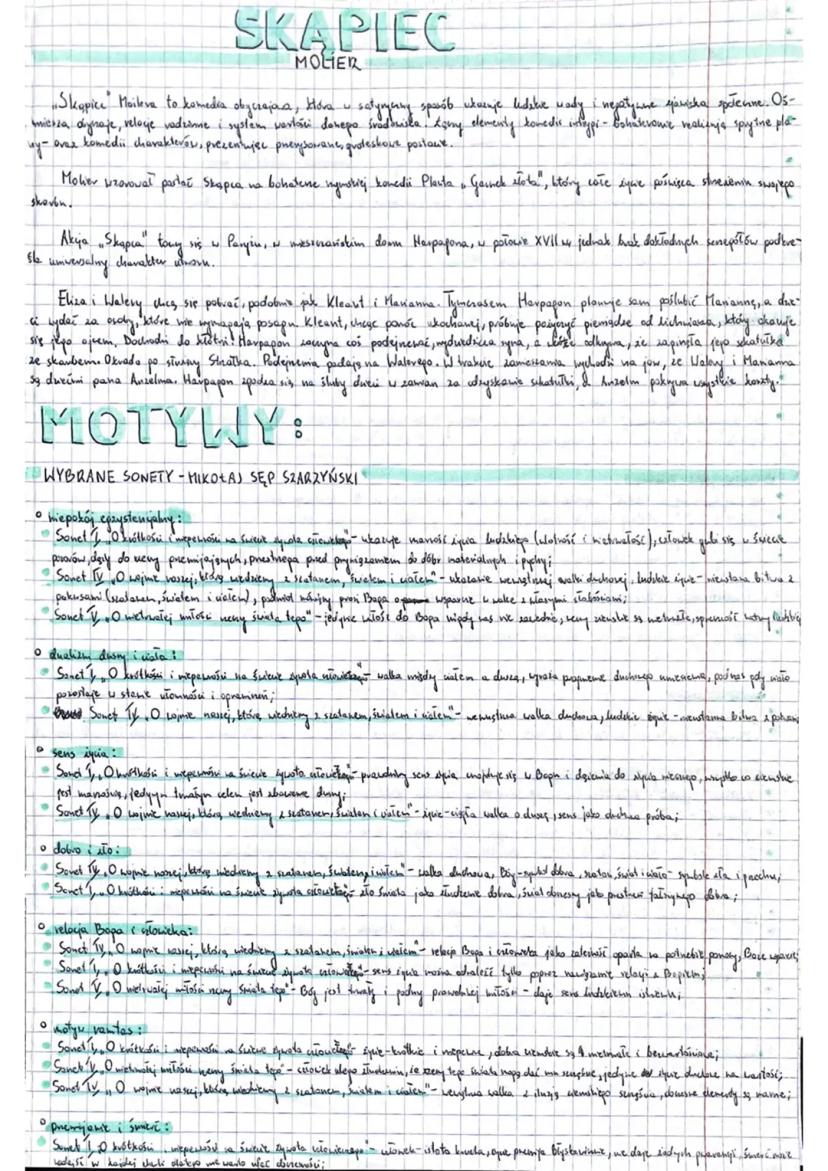 SKĄPIEC
MOLIER
„Skąpiec" Moliera to komedia obyczajowa, która w satyryczny sposób ukazuje ludzkie wady i negatywne zjawiska społeczne. Oś-
miesza obyczaje, relacje rodzinne i system wartości danego środowiska. Łączy elementy komedii intrygi - bohaterowie realizują sprytne pla-
ny - oraz komedii charakterów, prezentując przerysowane, groteskowe postacie.
Molier wzorował postać Skąpca na bohaterze rzymskiej komedii Plauta „Garnek złota", który całe życie poświęca strzeżeniu swojego
skarbu.
Akcja „Skąpca" toczy się w Paryżu, w mieszczańskim domu Harpagona, w połowie XVII w, jednak brak dokładnych szczegółów podkre-
śla uniwersalny charakter utworu.
Eliza i Walery chcą się pobrać, podobnie jak Kleant i Marianna. Tymczasem Harpagon planuje sam poślubić Mariannę, a dzie-
ci wydać za osoby, które nie wymagają posagu. Kleant, chcąc pomóc ukochanej, próbuje pożyczyć pieniądze od lichwiarza, który okazuje
się jego ojcem. Dochodzi do kłótni! Harpagon zaczyna coś podejrzewać, wydziedzicza syna, a odkrywa, że zaginęła jego szkatułka
ze skarbem. Okrada go służący Strzałka. Podejrzenia padają na Walerego. W trakcie zamieszania wychodzi na jaw, że Walery i Marianna
są dziećmi pana Anzelma. Harpagon zgadza się na śluby dzieci w zamian za odzyskanie szkatułki, a Anzelm pokrywa wszystkie koszty.
MOTYWY:
WYBRANE SONETY - MIKOŁAJ SĘP SZARZYŃSKI
niepokój egzystencjalny:
Sonet I „O krótkości i niepewności na świecie żywota człowieczego" - ukazuje marność życia ludzkiego (ulotność i nietrwałość), człowiek gubi się w świecie
pozorów, dąży do rzeczy przemijających, przestroga przed przywiązaniem do dóbr materialnych i pychy;
Sonet IV „O wojnie naszej, którą wiedziemy z szatanem, światem i ciałem" - ukazanie wewnętrznej walki duchowej, ludzkie życie - nieustanna bitwa z
pokusami (szatanem, światem i ciałem), podmiot liryczny prosi Boga o wsparcie w walce z własnymi słabościami;
Sonet V „O nietrwałej miłości rzeczy świata tego" - jedynie miłość do Boga nigdy nas nie zawiedzie, rzeczy ziemskie są nietrwałe, sprzeczność natury ludzkiej
dualizm duszy i ciała:
Sonet I „O krótkości i niepewności na świecie żywota człowieczego" - walka między ciałem a duszą, wyraża pragnienie duchowego wzniesienia, podczas gdy ciało
pozostaje w stanie ułomności i ograniczeń;
Sonet IV „O wojnie naszej, którą wiedziemy z szatanem, światem i ciałem" - wewnętrzna walka duchowa, ludzkie życie - nieustanna bitwa z pokusami
sens życia:
Sonet I „O krótkości i niepewności na świecie żywota człowieczego" - prawdziwy sens życia znajduje się w Bogu i dążeniu do życia wiecznego, wszystko co ziemskie
jest marnością, jedynym trwałym celem jest zbawienie duszy;
Sonet IV „O wojnie naszej, którą wiedziemy z szatanem, światem i ciałem" - życie - ciągła walka o duszę, sens jako duchowa próba;
dobro i zło:
Sonet IV „O wojnie naszej, którą wiedziemy z szatanem, światem i ciałem" - walka duchowa, Bóg - symbol dobra, szatan, świat i ciało - symbole zła i grzechu;
Sonet I „O krótkości i niepewności na świecie żywota człowieczego" - zło świata jako złudzenie dobra, świat doczesny jako przestrzeń fałszywego dobra;
relacja Boga i człowieka:
Sonet IV „O wojnie naszej, którą wiedziemy z szatanem, światem i ciałem" - relacja Boga i człowieka jako zależność oparta na potrzebie pomocy, Boże wsparcie;
Sonet I „O krótkości i niepewności na świecie żywota człowieczego" - sens życia można odnaleźć tylko poprzez nawiązanie relacji z Bogiem;
Sonet V „O nietrwałej miłości rzeczy świata tego" - Bóg jest trwały i godny prawdziwej miłości - daje sens ludzkiemu istnieniu;
motyw vanitas:
Sonet I „O krótkości i niepewności na świecie żywota człowieczego" - życie - krótkie i niepewne, dobra ziemskie są nietrwałe i bezwartościowe;
Sonet V „O nietrwałej miłości rzeczy świata tego" - człowiek ulega złudzeniom, że rzeczy tego świata mogą dać mu szczęście, jedynie życie duchowe ma wartość;
Sonet IV „O wojnie naszej, którą wiedziemy z szatanem, światem i ciałem" - wewnętrzna walka z iluzją ziemskiego szczęścia, doczesne elementy są marne;
przemijanie i śmierć:
Sonet I „O krótkości i niepewności na świecie żywota człowieczego" - człowiek - istota krucha, życie przemija błyskawicznie, nie daje żadnych gwarancji, śmierć może
nadejść w każdej chwili dlatego nie warto ufać doczesności;